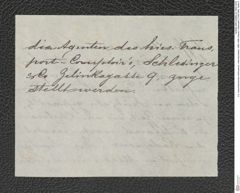 den Agenten des hies. Trans,
port-Comptoir's, Schlesinger
& Co Zelinkagasse 9, zuge
stellt werden.